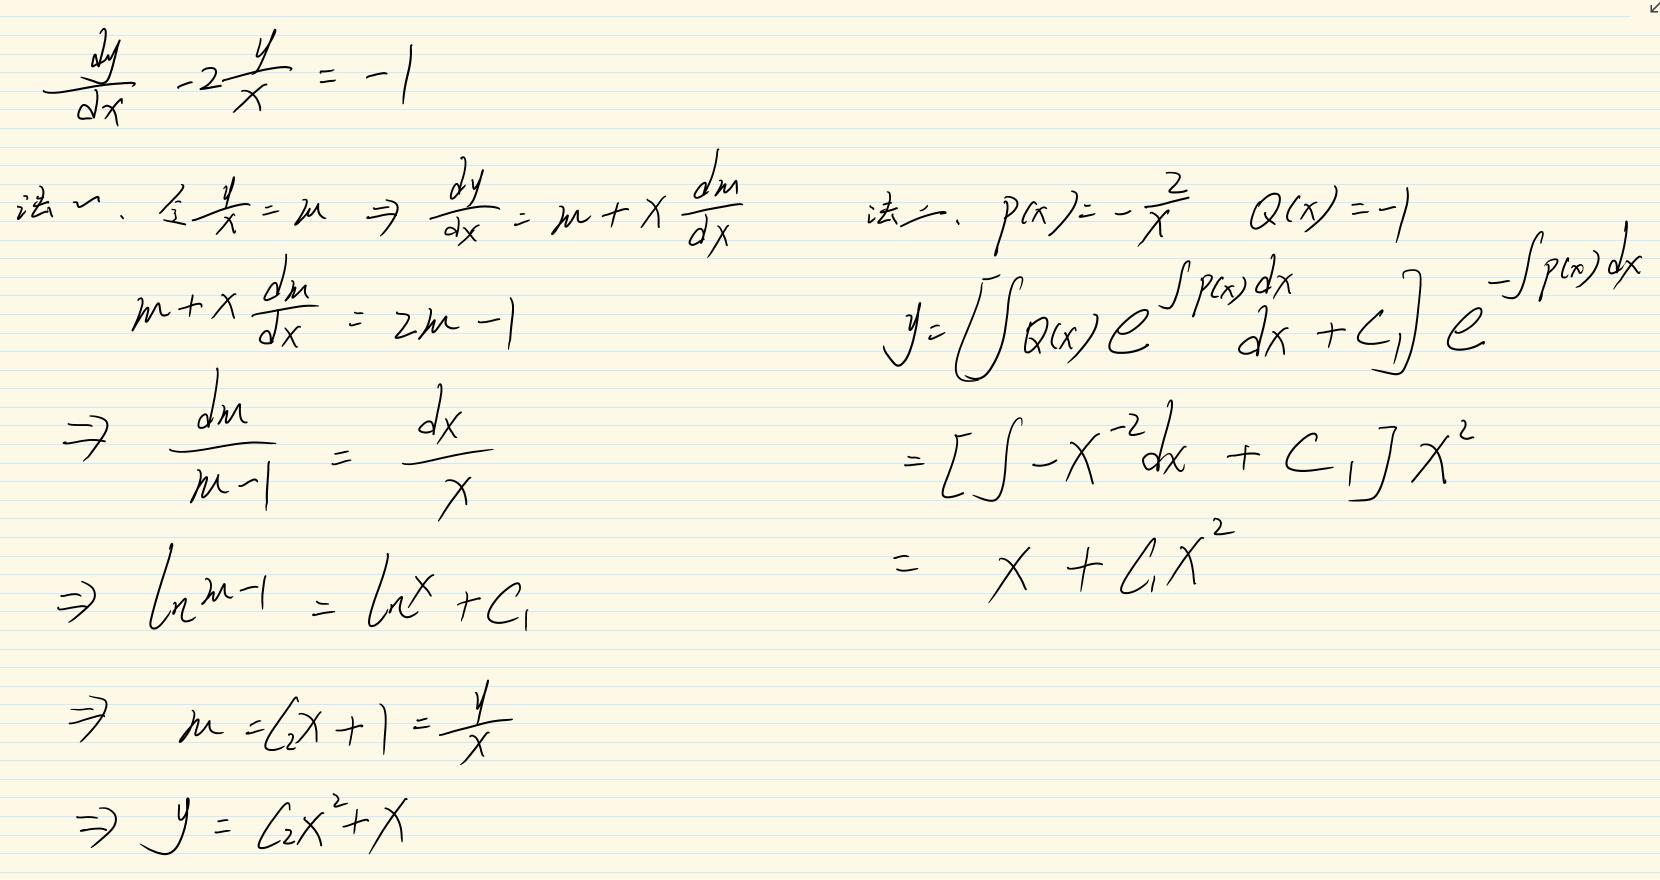 dy/dx - 2 y/x = -1
法一. 令 y/x = m ⇒ dy/dx = m + x dm/dx
m + x dm/dx = 2m - 1
⇒ dm/(m-1) = dx/x
⇒ ln^(m-1) = ln^x + C₁
⇒ m = C₂x + 1 = y/x
⇒ y = C₂x² + x
法二. P(x) = -2/x Q(x) = -1
y = [∫ Q(x) e^(∫P(x)dx) dx + C₁] e^(-∫P(x)dx)
= [∫ -x^(-2) dx + C₁] x²
= x + C₁x²